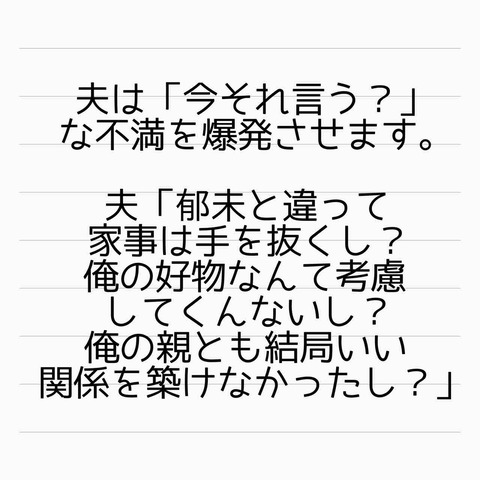 夫は「今それ言う？」
な不満を爆発させます。
夫「郁未と違って
家事は手を抜くし？
俺の好物なんて考慮
してくんないし？
俺の親とも結局いい
関係を築けなかったし？」